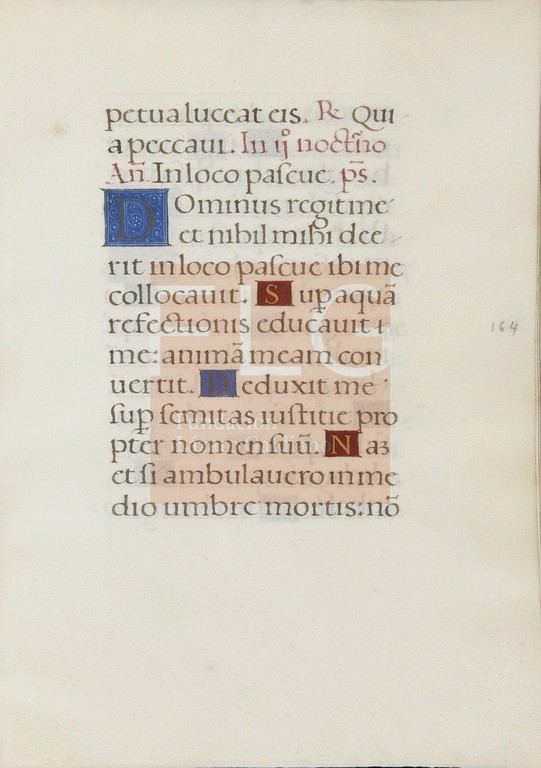 petua luceat eis. ℟ Qui
a peccaui. In ij noct̄no
An̄. In loco pascue. ps̄.
Dominus regit me
et nibil mihi dee
rit in loco pascue ibi me
collocauit. Sup aquā
refectionis educauit
me: animā meam con
uertit. Deduxit me
sup semitas iustitie pro
pter nomen suū. Naꝫ
et si ambulauero in me
dio umbre mortis: nō
164
FLG
Fundación